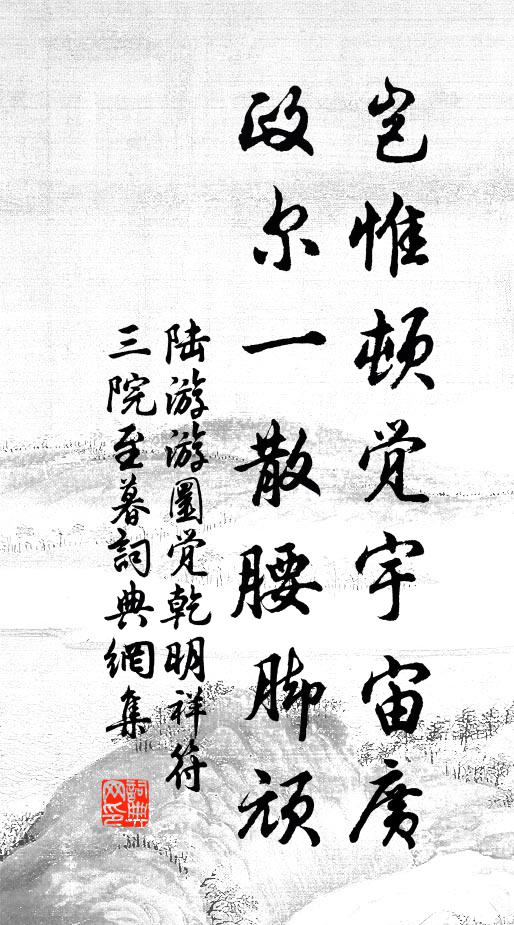 岂惟顿觉宇宙广
政尔一散腰脚顽
陆游游圆觉乾明祥符
三院至暮詞典網集
詞典网印